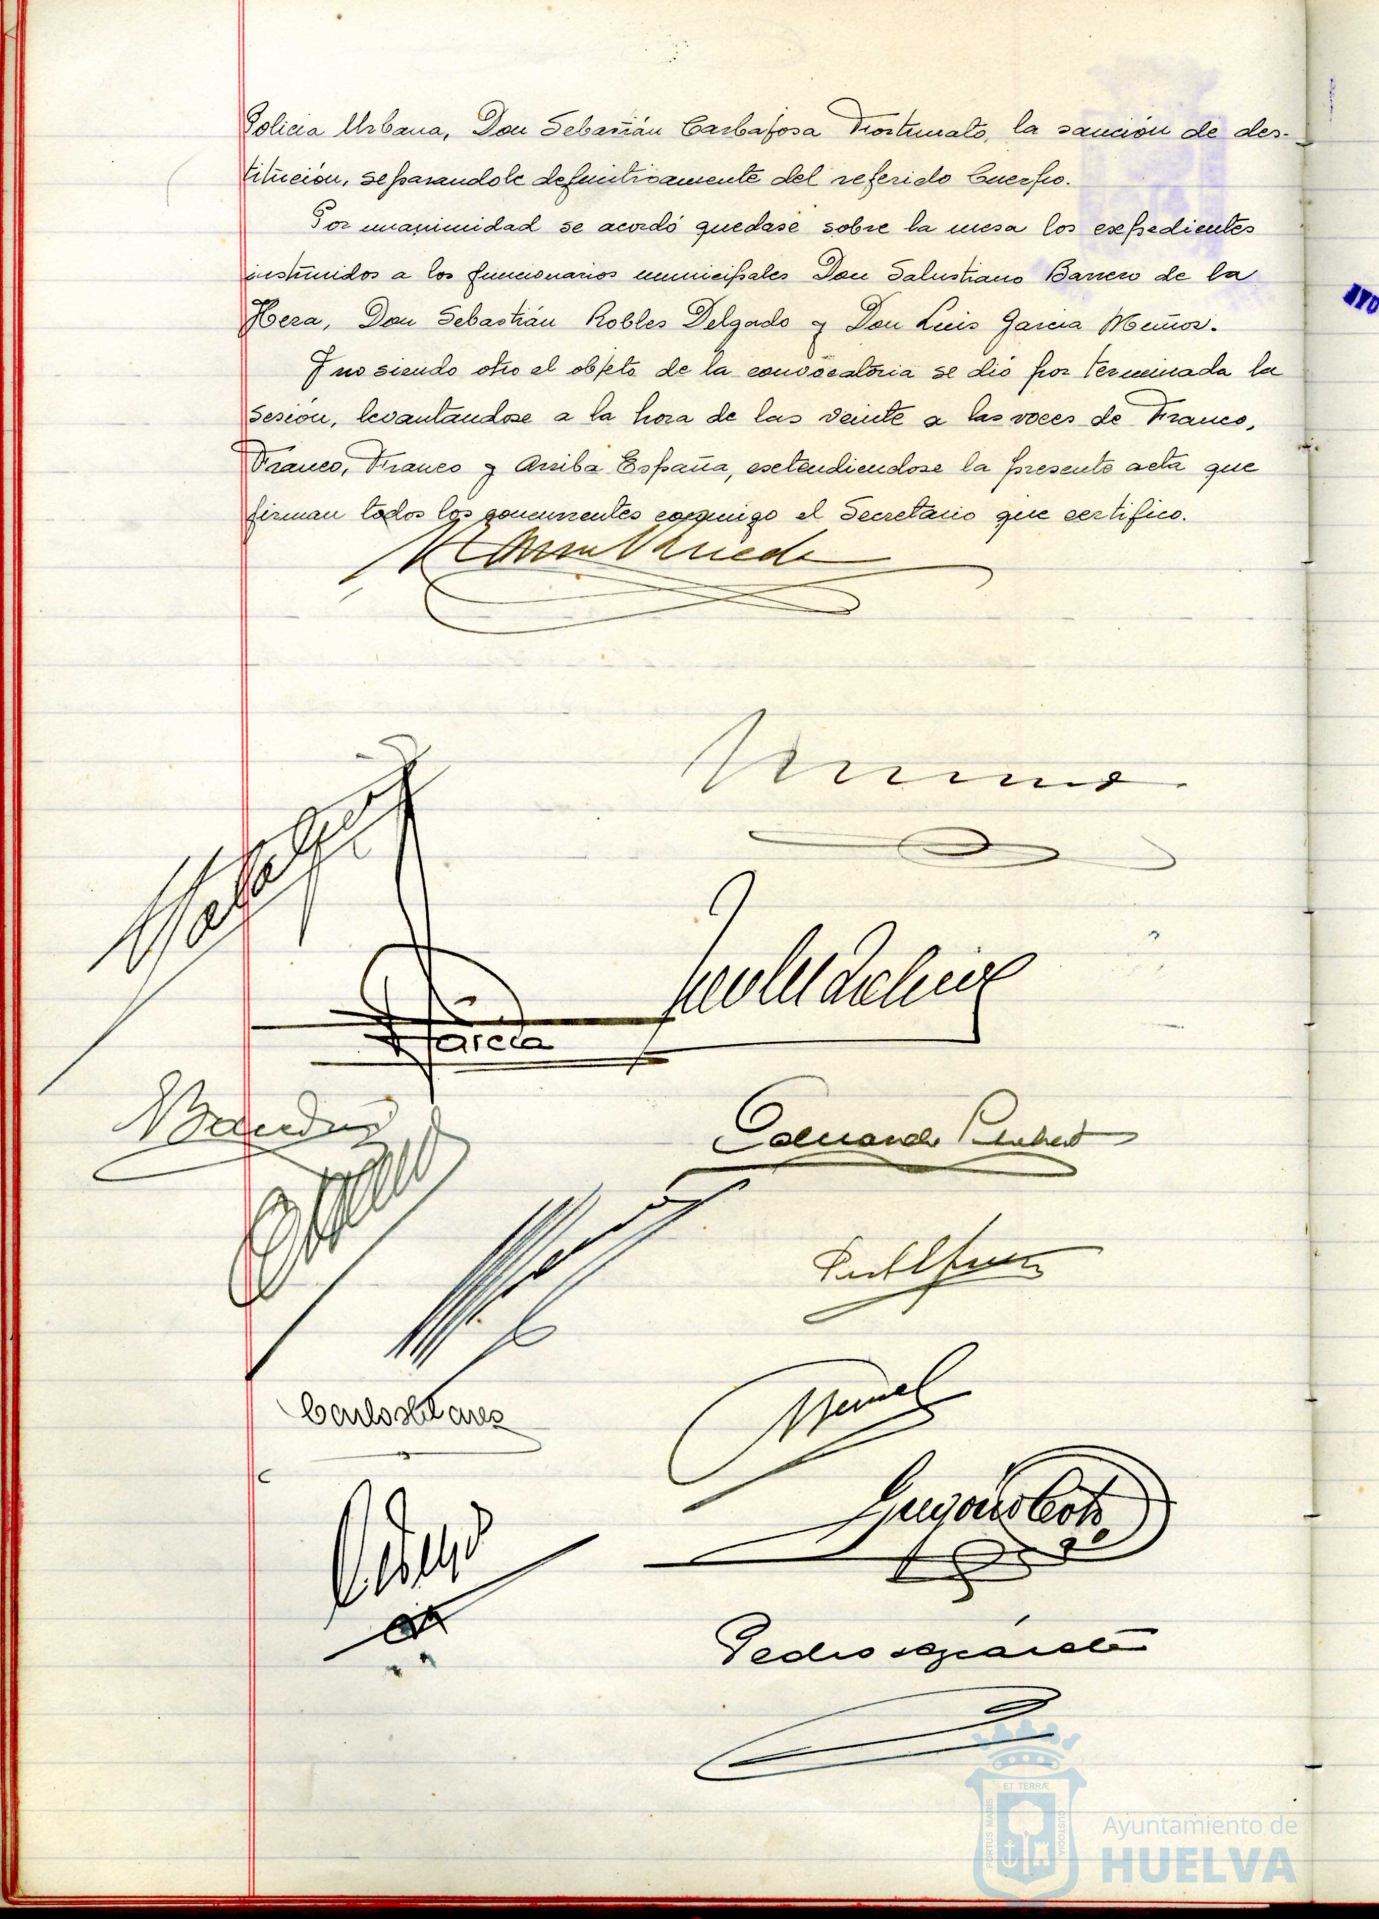 Policia Urbana, Don Sebastián Carbajosa Fortunato, la sanción de des-
titución, separandole definitivamente del referido Cuerpo.
Por unanimidad se acordó quedase sobre la mesa los expedientes
instruidos a los funcionarios municipales Don Salustiano Barrero de la
Hera, Don Sebastián Robles Delgado y Don Luis Garcia Muñoz.
Y no siendo otro el objeto de la convocatoria se dió por terminada la
sesión, levantandose a la hora de las veinte a las voces de Franco,
Franco, Franco y Arriba España, extendiendose la presente acta que
firman todos los concurrentes conmigo el Secretario que certifico.
Garcia
Eduardo
Gregorio Coto
Pedro
PORTUS MARIS
ET TERRÆ
CUSTODIA
Ayuntamiento de
HUELVA